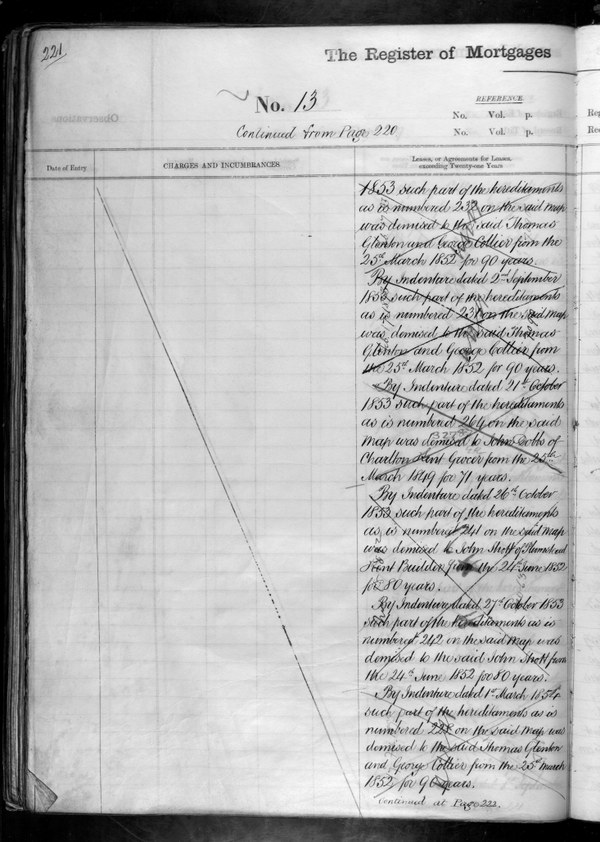 221
The Register of Mortgages
No. 13
REFERENCE
No. Vol. p.
Continued from Page 220
No. Vol. p.
Date of Entry
CHARGES AND INCUMBRANCES
Leases, or Agreements for Leases,
exceeding Twenty-one Years
1853 such part of the hereditaments
as is numbered 232 on the said map
was demised to the said Thomas
Glenton and George Collier from the
25th March 1852 for 90 years.
By Indenture dated 2nd September
1853 such part of the hereditaments
as is numbered 231 on the said map
was demised to the said Thomas
Glenton and George Collier from
the 25th March 1852 for 90 years.
By Indenture dated 21st October
1853 such part of the hereditaments
as is numbered 264 on the said
map was demised to John Cobbs of
Charlton Kent Grocer from the 25th
March 1849 for 71 years.
By Indenture dated 26th October
1853 such part of the hereditaments
as is numbered 241 on the said map
was demised to John Thott of
Kent Builder from the 24th June 1852
for 80 years.
By Indenture dated 27th October 1853
such part of the hereditaments as is
numbered 242 on the said map was
demised to the said John Thott from
the 24th June 1852 for 80 years.
By Indenture dated 1st March 1854
such part of the hereditaments as is
numbered 228 on the said map was
demised to the said Thomas Glenton
and George Collier from the 25th March
1852 for 90 years.
Continued at Page 222.